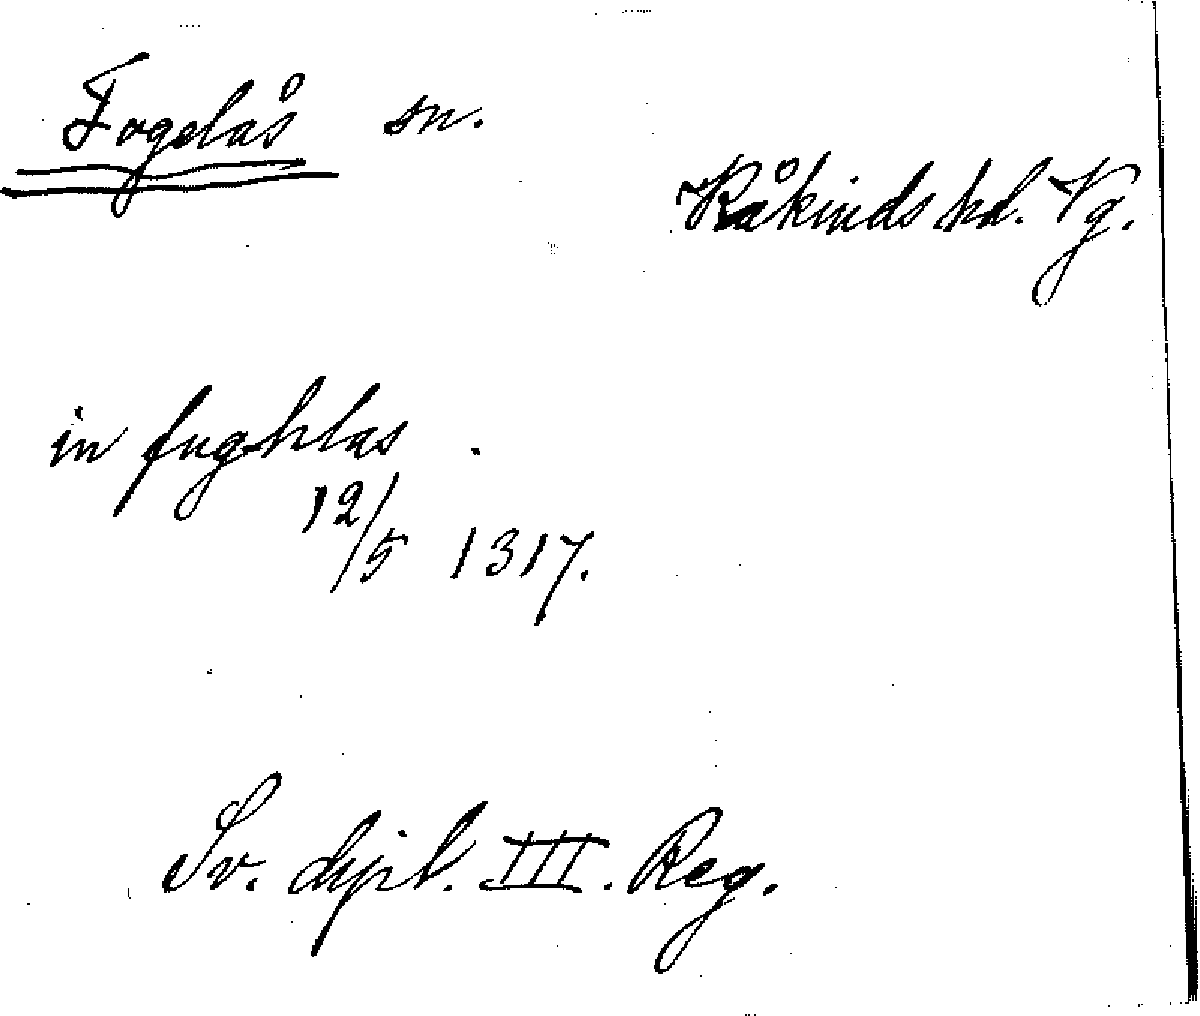 Fogelås sn.
Kåkinds hd. Vg.
in fughlas.
12/5 1317.
Sv. dipl. III. Reg.